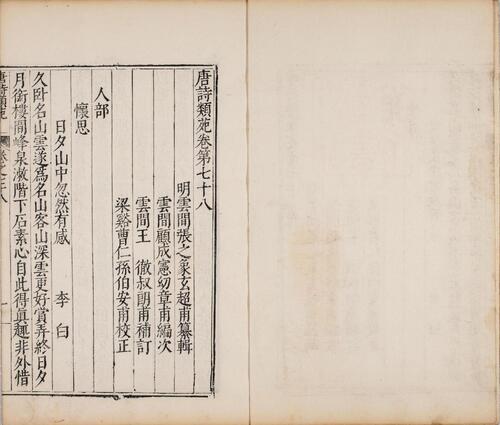 唐詩類苑卷第七十八
明雲間張之象玄超甫纂輯
雲間顧成憲幼章甫編次
雲間王徹叔朗甫補訂
梁谿曹仁孫伯安甫校正
人部
懷思
日夕山中忽然有感 李白
久臥名山雲遂爲名山客山深雲更好賞弄終日夕
月銜樓間峰泉漱階下石素心自此得眞趣非外借
唐詩類苑